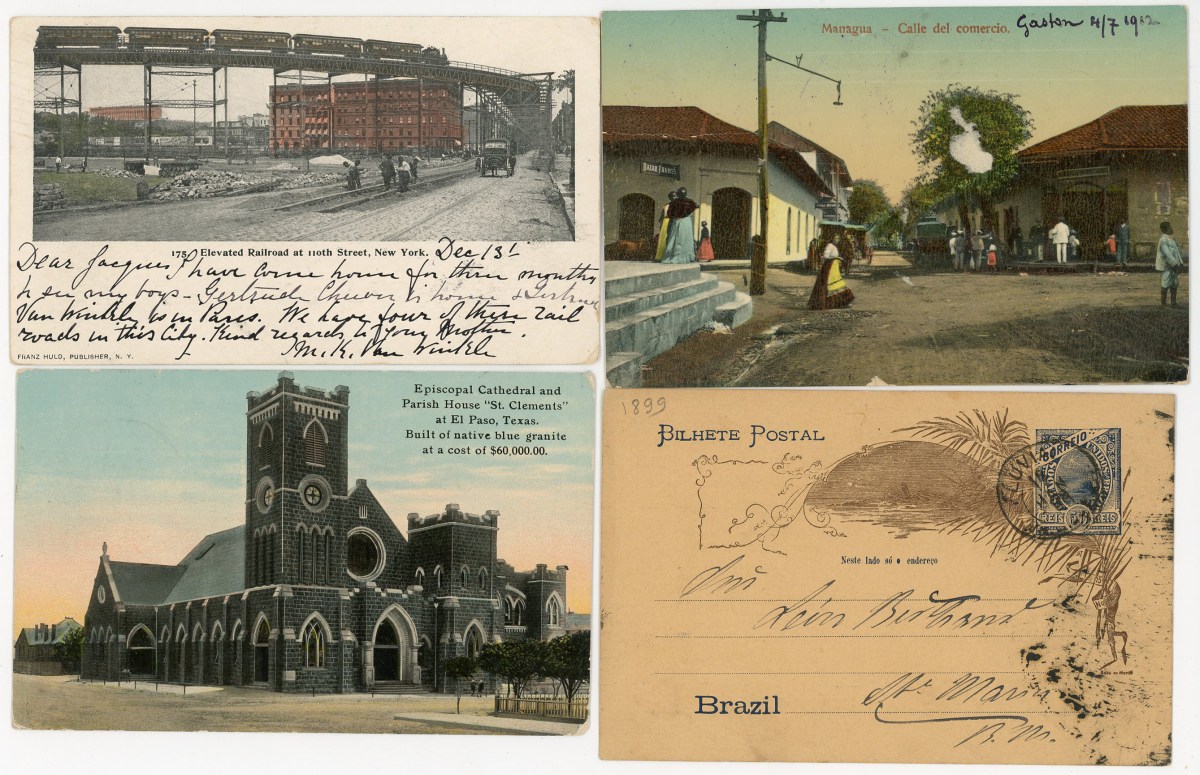 175. Elevated Railroad at 110th Street, New York. Dec 13th
Dear Jacques, I have come home for three months
to see my boys - Gertrude is home &
Van Winkle is in Paris. We have four of these rail
roads in this City. Kind regards to your Mother.
M. K. Van Winkle
FRANZ HULD, PUBLISHER, N. Y.
Managua - Calle del comercio.
Gaston 4/7 1912
Episcopal Cathedral and
Parish House "St. Clements"
at El Paso, Texas.
Built of native blue granite
at a cost of $60,000.00.
1899
BILHETE POSTAL
CORREIO
REIS 50 REIS
Neste lado só o endereço
Léon
Brazil